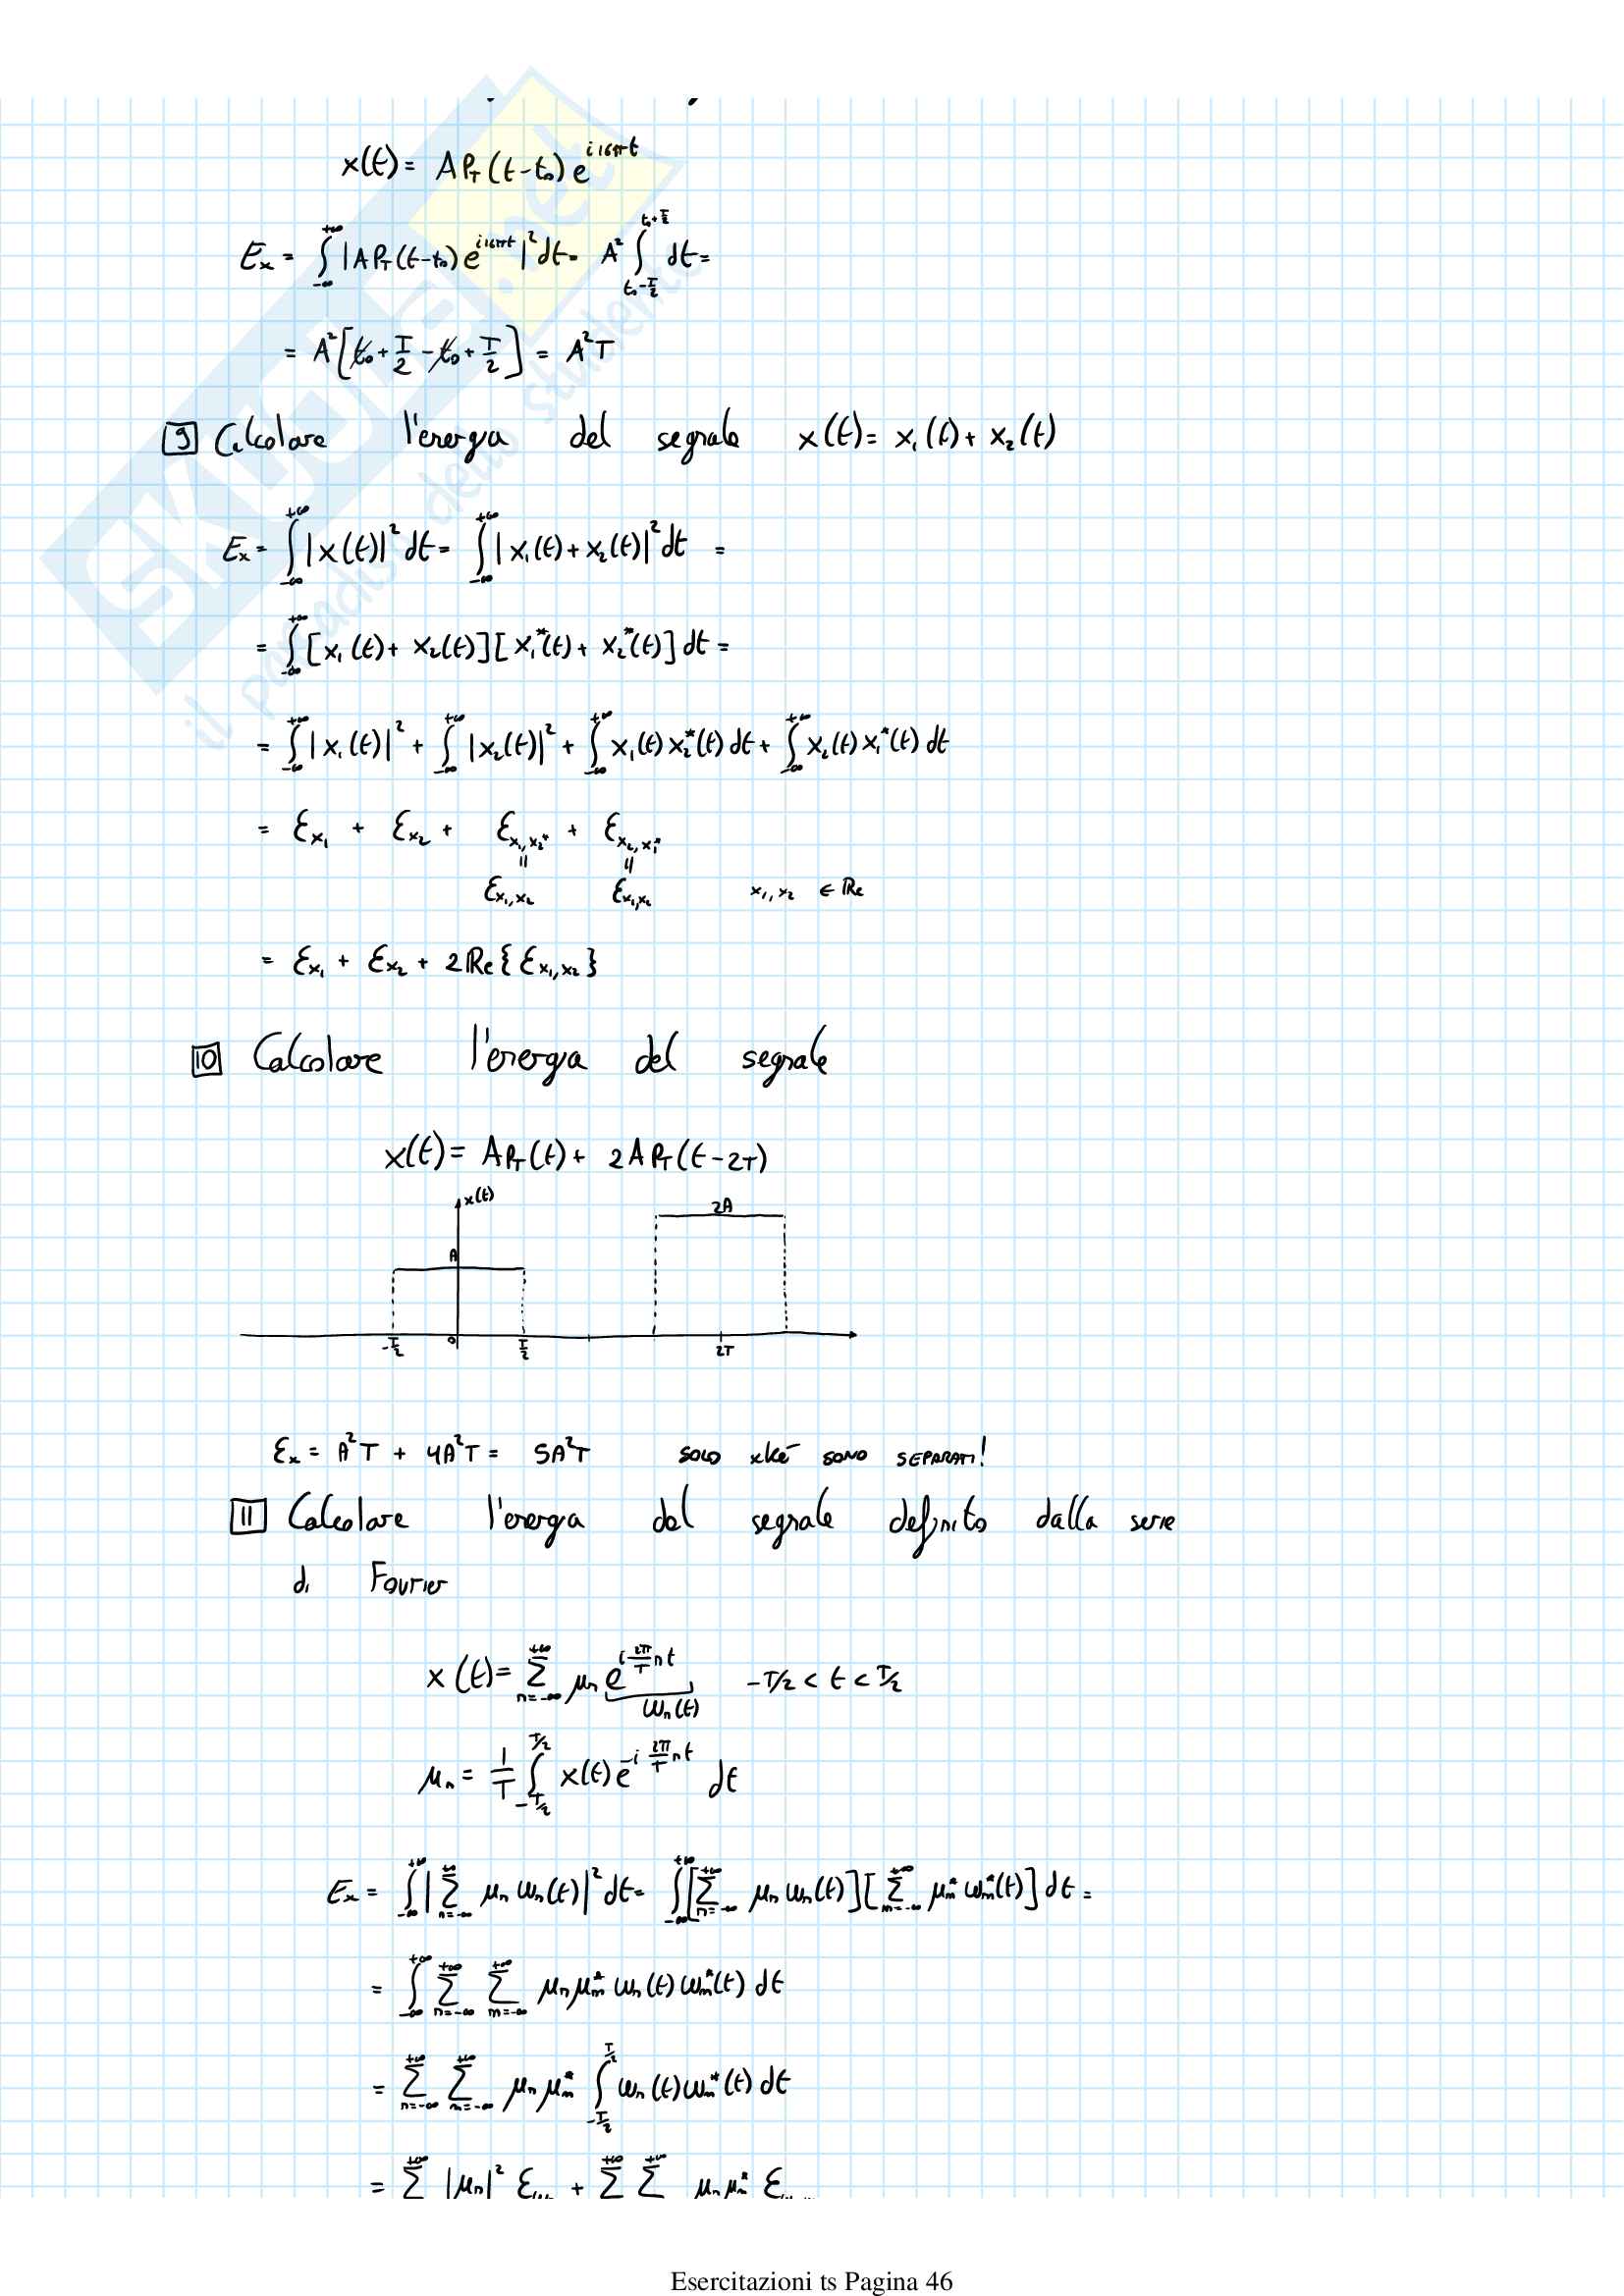 x(t) = A P_T (t-t_0) e^{i16πt}
E_x = ∫_{-∞}^{+∞} |A P_T (t-t_0) e^{i16πt}|^2 dt = A^2 ∫_{t_0-T/2}^{t_0+T/2} dt =
= A^2 [t_0 + T/2 - t_0 + T/2] = A^2 T
9 Calcolare l'energia del segnale x(t) = x_1(t) + x_2(t)
E_x = ∫_{-∞}^{+∞} |x(t)|^2 dt = ∫_{-∞}^{+∞} |x_1(t) + x_2(t)|^2 dt =
= ∫_{-∞}^{+∞} [x_1(t) + x_2(t)][x_1^*(t) + x_2^*(t)] dt =
= ∫_{-∞}^{+∞} |x_1(t)|^2 + ∫_{-∞}^{+∞} |x_2(t)|^2 + ∫_{-∞}^{+∞} x_1(t) x_2^*(t) dt + ∫_{-∞}^{+∞} x_2(t) x_1^*(t) dt
= E_{x_1} + E_{x_2} + E_{x_1,x_2^*} + E_{x_2,x_1^*}
= =
E_{x_1,x_2} E_{x_1,x_2} x_1, x_2 ∈ Re
= E_{x_1} + E_{x_2} + 2Re{E_{x_1,x_2}}
10 Calcolare l'energia del segnale
x(t) = A P_T(t) + 2A P_T(t-2T)
x(t)
2A
A
-T/2 0 T/2 2T
E_x = A^2 T + 4A^2 T = 5A^2 T SOLO xké SONO SEPARATI!
11 Calcolare l'energia del segnale definito dalla serie
di Fourier
x(t) = ∑_{n=-∞}^{+∞} μ_n e^{i 2π/T nt} -T/2 < t < T/2
ω_n(t)
μ_n = 1/T ∫_{-T/2}^{T/2} x(t) e^{-i 2π/T nt} dt
E_x = ∫_{-∞}^{+∞} |∑_{n=-∞}^{∞} μ_n ω_n(t)|^2 dt = ∫_{-∞}^{+∞} [∑_{n=-∞}^{+∞} μ_n ω_n(t)][∑_{m=-∞}^{+∞} μ_m^* ω_m^*(t)] dt =
= ∫_{-∞}^{+∞} ∑_{n=-∞}^{+∞} ∑_{m=-∞}^{+∞} μ_n μ_m^* ω_n(t) ω_m^*(t) dt
= ∑_{n=-∞}^{+∞} ∑_{m=-∞}^{+∞} μ_n μ_m^* ∫_{-T/2}^{T/2} ω_n(t) ω_m^*(t) dt
= ∑^{+∞} |μ_n|^2 E + ∑^{+∞} ∑^{+∞} μ_n μ_m^* E
Esercitazioni ts Pagina 46